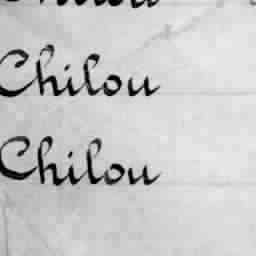 Chilou
Chilou